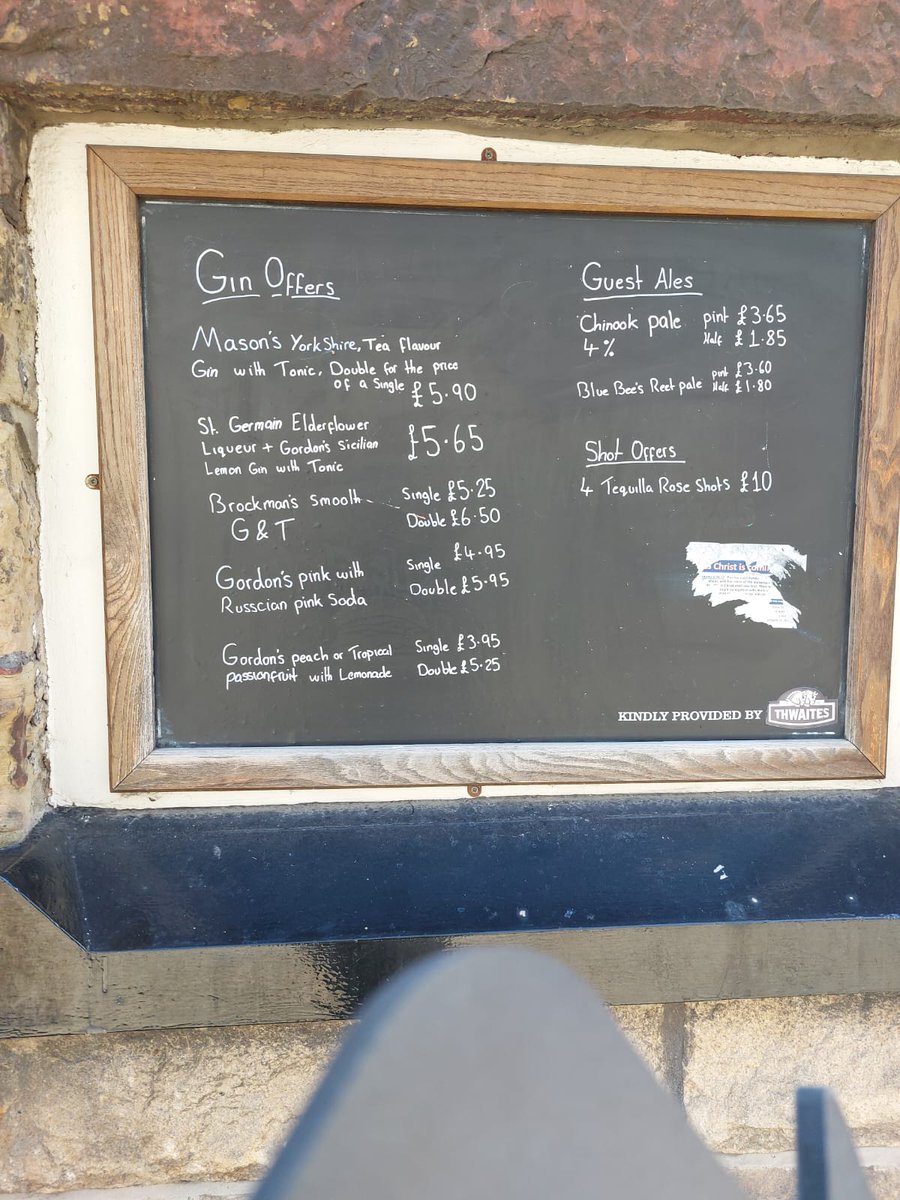 Gin Offers
Mason's Yorkshire, Tea flavour
Gin with Tonic, Double for the price
of a Single £5.90
St. Germain Elderflower
Liqueur + Gordon's Sicilian £5.65
Lemon Gin with Tonic
Brockman's Smooth Single £5.25
G & T Double £6.50
Gordon's pink with Single £4.95
Russcian pink Soda Double £5.95
Gordon's peach or Tropical Single £3.95
passionfruit with Lemonade Double £5.25
Guest Ales
Chinook pale pint £3.65
4% Half £1.85
Blue Bee's Reet pale pint £3.60
Half £1.80
Shot Offers
4 Tequilla Rose Shots £10
Christ is
KINDLY PROVIDED BY THWAITES